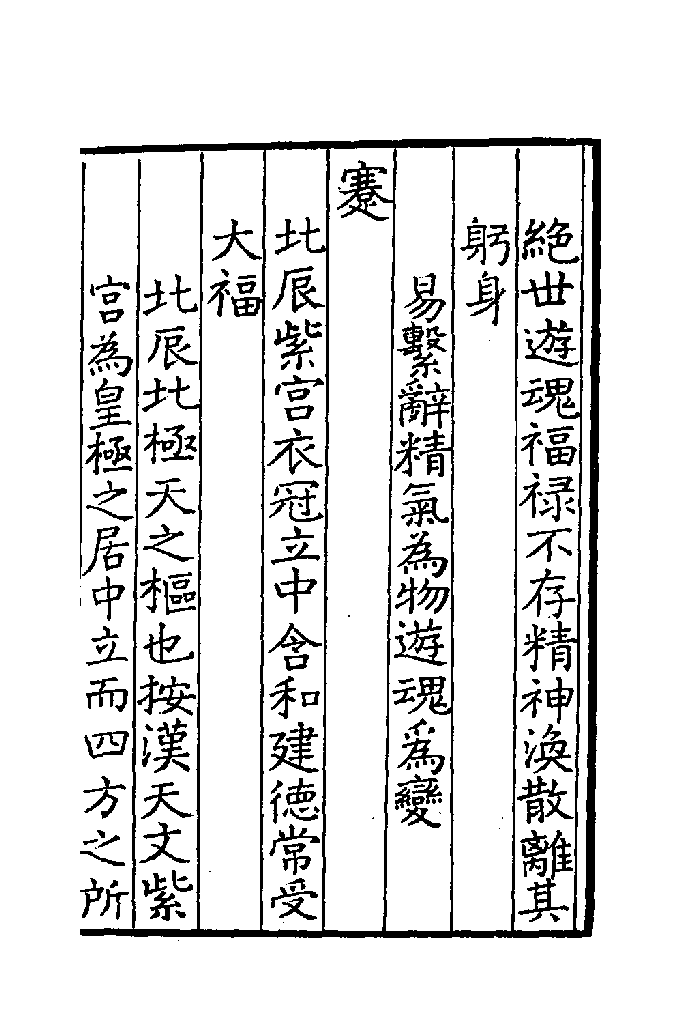 絶丗遊魂福禄不存精神渙散離其
躬身
易繫辭精氣為物遊魂爲變
蹇
北辰紫宫衣冠立中含和建徳常受
大福
北辰北極天之樞也按漢天文紫
宫為皇極之居中立而四方之所